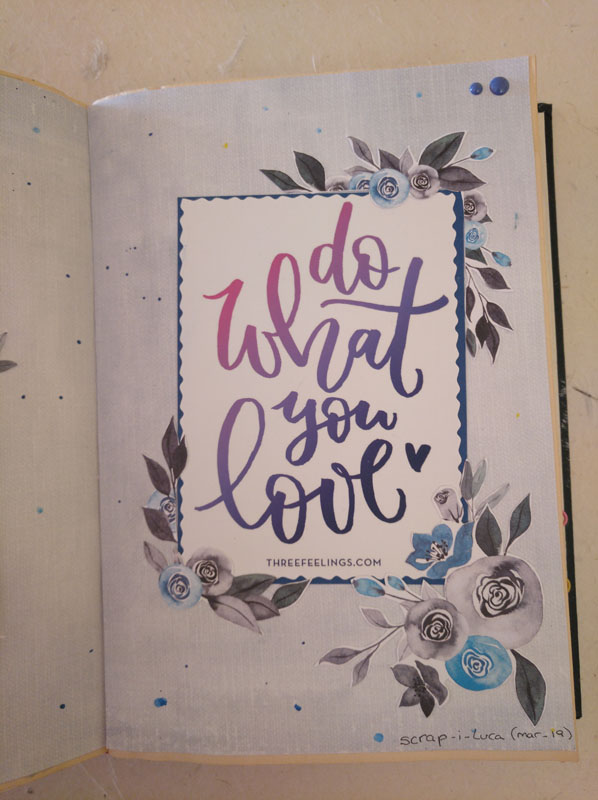 do
What
you
love
THREEFEELINGS.COM
scrap-i-Luca (mar-19)